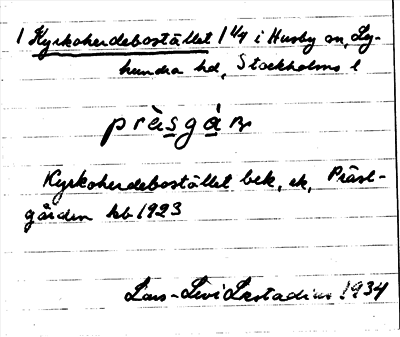 1 Kyrkoherdebostället 1 1/4 i Husby sn, Ly-
hundra hd, Stockholms l
prä̀sgà̱ʀ
Kyrkoherdebostället bek, ek, Präst-
gården hb 1923
Lars-Levi Læstadius 1934